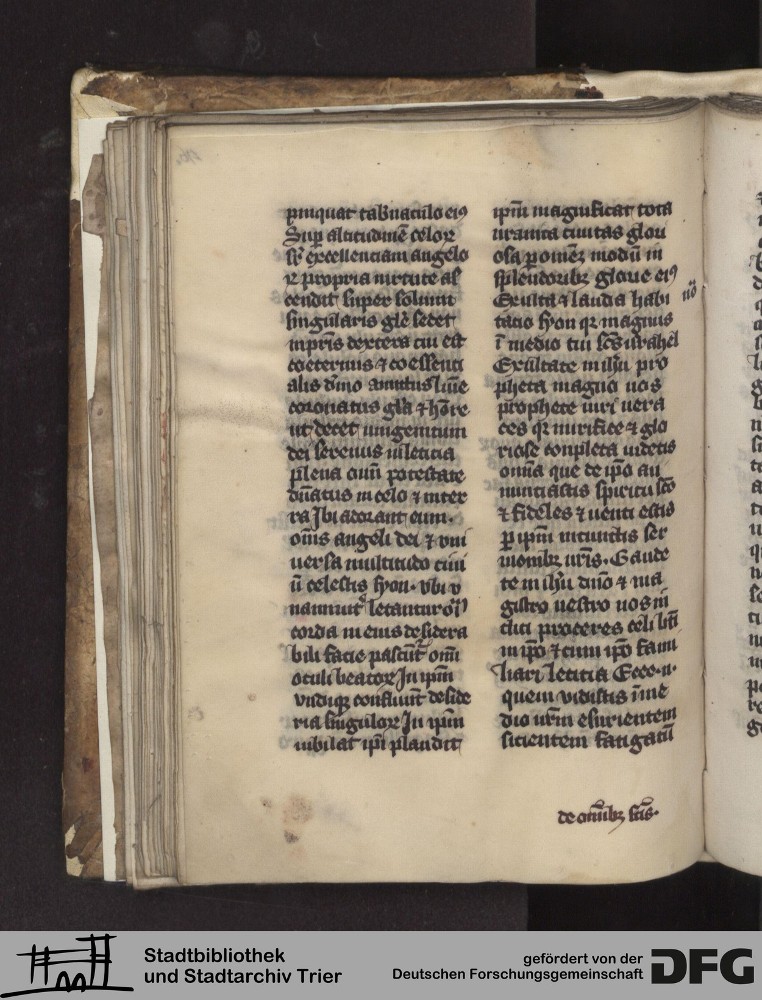 pinquat tab'naculo ei⁹
Sup altitudinē celoꝝ
sr̄ excellenciam angelo
ꝝ propria uirtute as
cendit super solium
singularis gl'e sedet
in pris dextera cui est
coeternus ⁊ co essenti
alis dīno amictus
coronatus gl'a ⁊ hōre
ut decet unigenitum
dei serenus in leticia
plena omī potestate
dn̄atus in celo ⁊ in ter
ra Ibi adorant eum.
om̄s angeli dei ⁊ vni
uersa multitudo ciui
ū celestis syon. vbi v
nanimit' letantur oī
corda in eius desidera
bili facie pascūt omī
oculi beatoꝝ In ipm̄
vndiqꝫ confluūt deside
ria singuloꝝ In ipm̄
iubilat ipi plaudit
ipm̄ magnificat tota
uranica ciuitas glori
osa p omnē modū in
splendoribꝫ glorie ei⁹
Exulta ⁊ lauda habi
tatio syon qꝛ magnus
ī medio tui scs israhel
Exultate in ihū pro
pheta magno uos
prophete uiri uera
ces qꝛ mirifice ⁊ glo
riose conpleta videtis
omnia que de ipo an
nunciastis spiritu sco
⁊ fideles ⁊ uenti estis
p ipm̄ in cunctis ser
monibꝫ uris. Gaude
te in ihū dn̄o ⁊ ma
gistro uestro uos in
cliti proceres celi
in ipo ⁊ cum ipo fami
liari leticia Ecce.n.
quem vidistis ī me
dio urm esurientem
sicientem fatigatū
nō
de omībꝫ scīs.
Stadtbibliothek
und Stadtarchiv Trier
gefördert von der
Deutschen Forschungsgemeinschaft
DFG